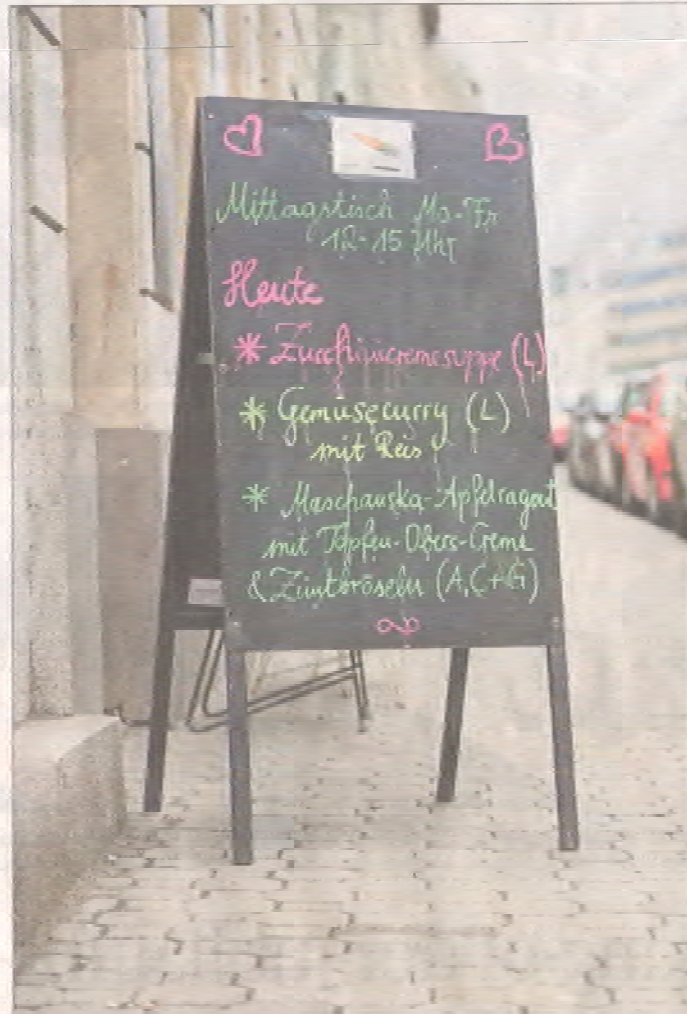 Mittagstisch Mo-Fr
12-15 Uhr
Heute
* Zucchinicremesuppe (L)
* Gemüsecurry (L)
mit Reis
* Maschanska-Apfelragout
mit Topfen-Obers-Creme
& Zimtbröseln (A,C+G)